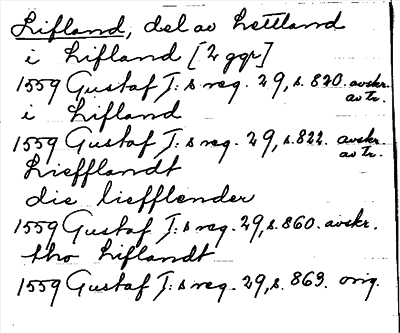 Lifland, del av Lettland
i Lifland [2 ggr]
1559 Gustaf I:s reg. 29, s. 820. avskr. av tr.
i Lifland
1559 Gustaf I:s reg. 29, s. 822. avskr. av tr.
Liefflandt
die liefflender
1559 Gustaf I:s reg. 29, s. 860. avskr.
tho Liflandt
1559 Gustaf I:s reg. 29, s. 863. orig.